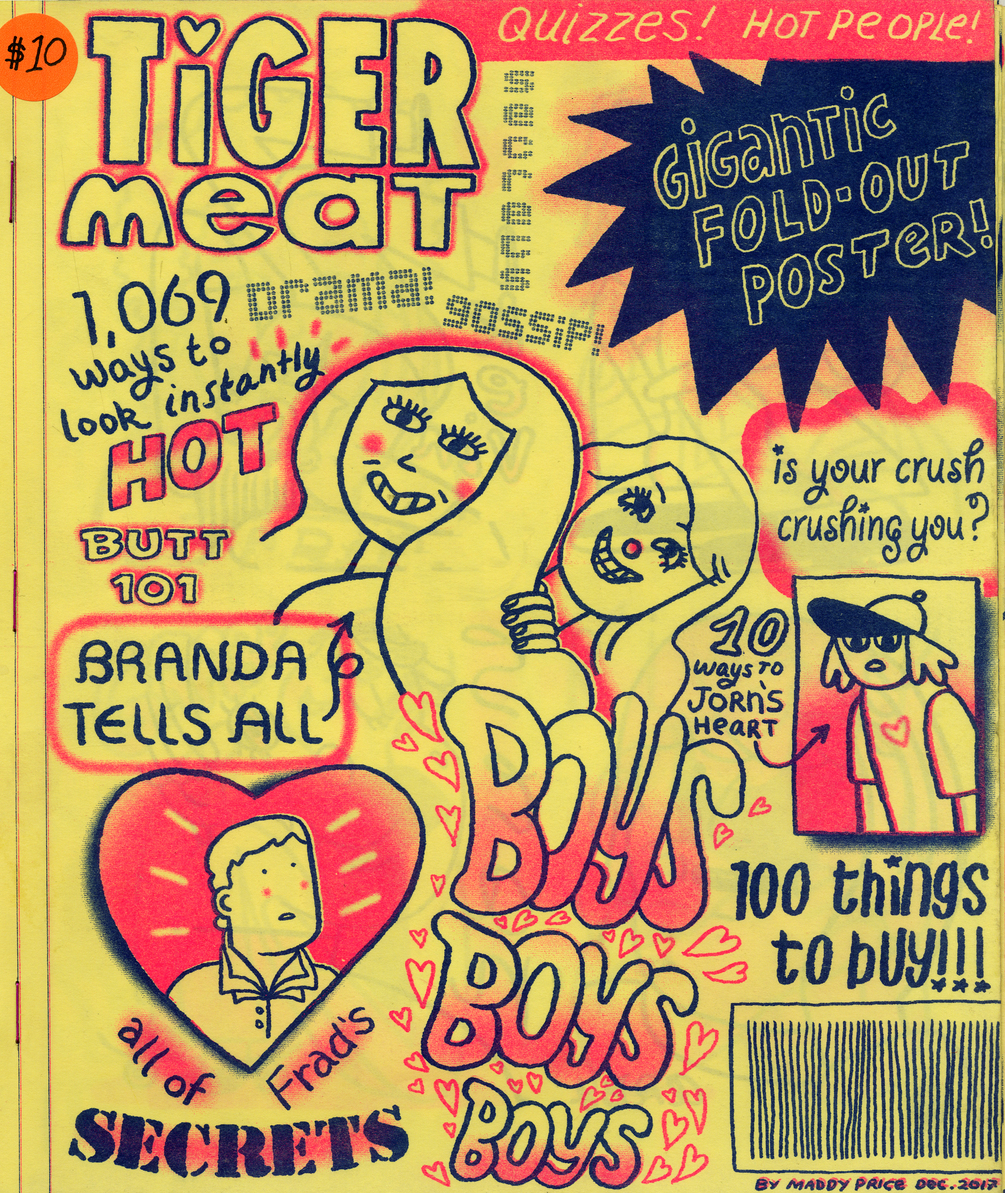 $10
TiGER
meat
QUiZZES! HOT PEOPLE!
GiGanTic
FOLD-OUT
POSTeR!
1,069
ways to
look instantly
HOT
Drama!
gossiP!
BUTT
101
BRANDA
TELLS ALL
is your crush
crushing you?
10
WAYS TO
JORN'S
HEART
BOYS
BOYS
BOYS
100 things
to buy!!!
all of Frad's
SECRETS
BY MADDY PRICE DEC. 2017